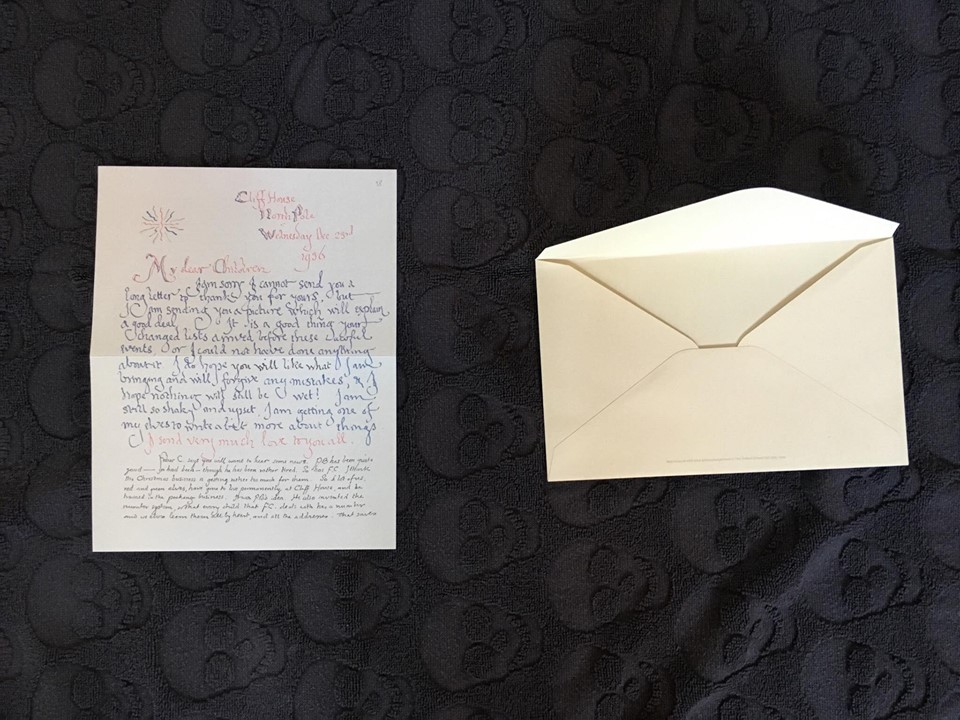 Cliff House
North Pole
Wednesday Dec. 23rd
1936
My dear Children
I am sorry I cannot send you a
long letter to thank you for yours, but
I am sending you a picture which will explain
a good deal. It is a good thing your
changed lists arrived before these
events, or I could not have done anything
about it. I do hope you will like what I am
bringing and will forgive any mistakes, & I
hope nothing will still be wet! I am
still so shaky and upset, I am getting one of
my elves to write a bit more about things
I send very much love to you all.
Father C. says you will want to hear some news. PB has been quite
good — or had been — though he has been rather tired. So has F.C. I think
the Christmas business is getting rather too much for them. So a lot of us,
red and green elves, have gone to live permanently at Cliff House, and be
trained in the packing business. It was PB's idea. He also invented the
number system, so that every child that F.C. deals with has a number
and we elves learn them all by heart, and all the addresses. That saves